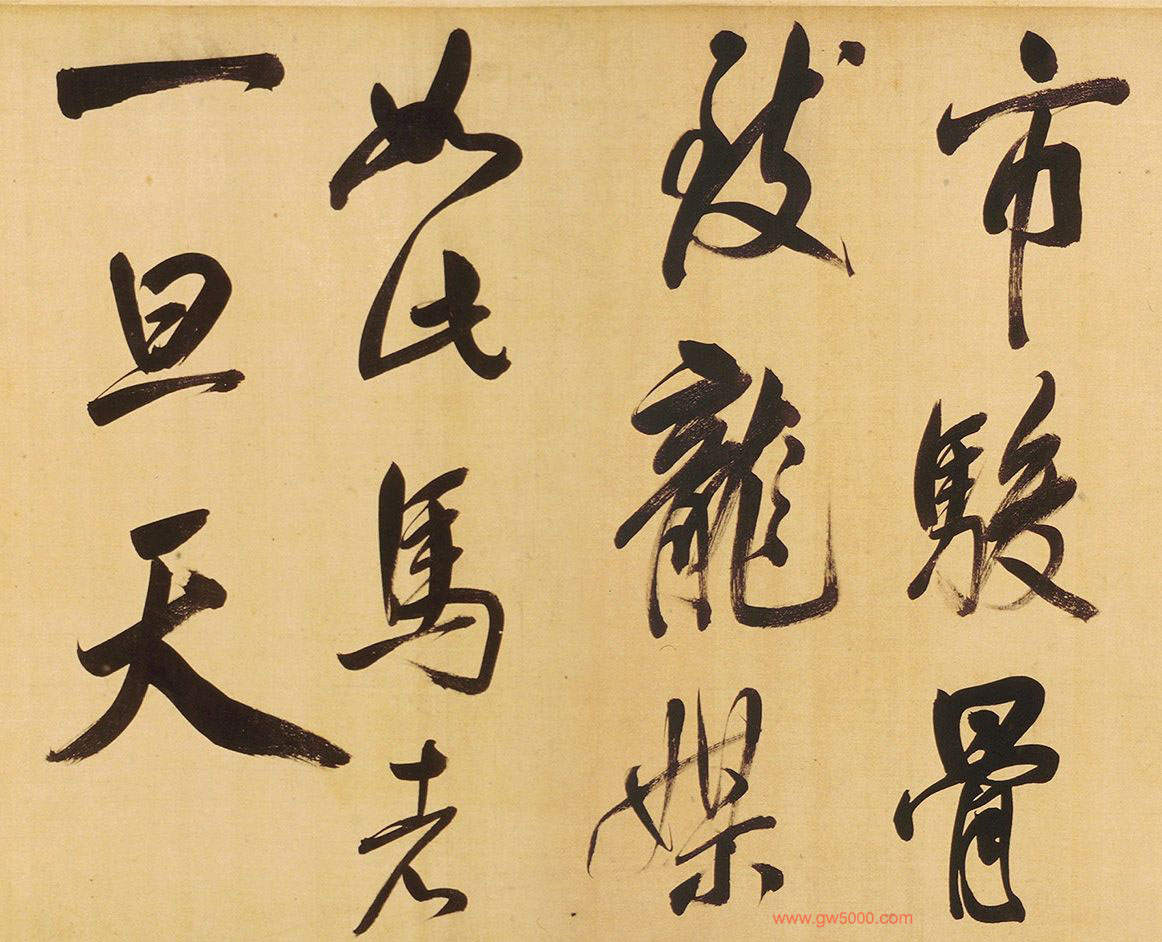 市駿骨
致龍媒
如此馬者
一旦天
www.gw5000.com